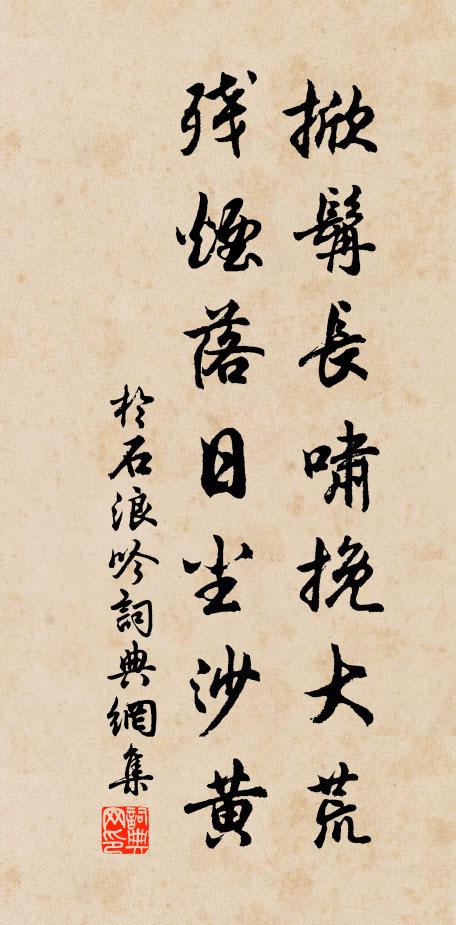 掀髯長嘯挽大荒
残煙落日尘沙黄
於石浪吟詞典網集
詞典
网印